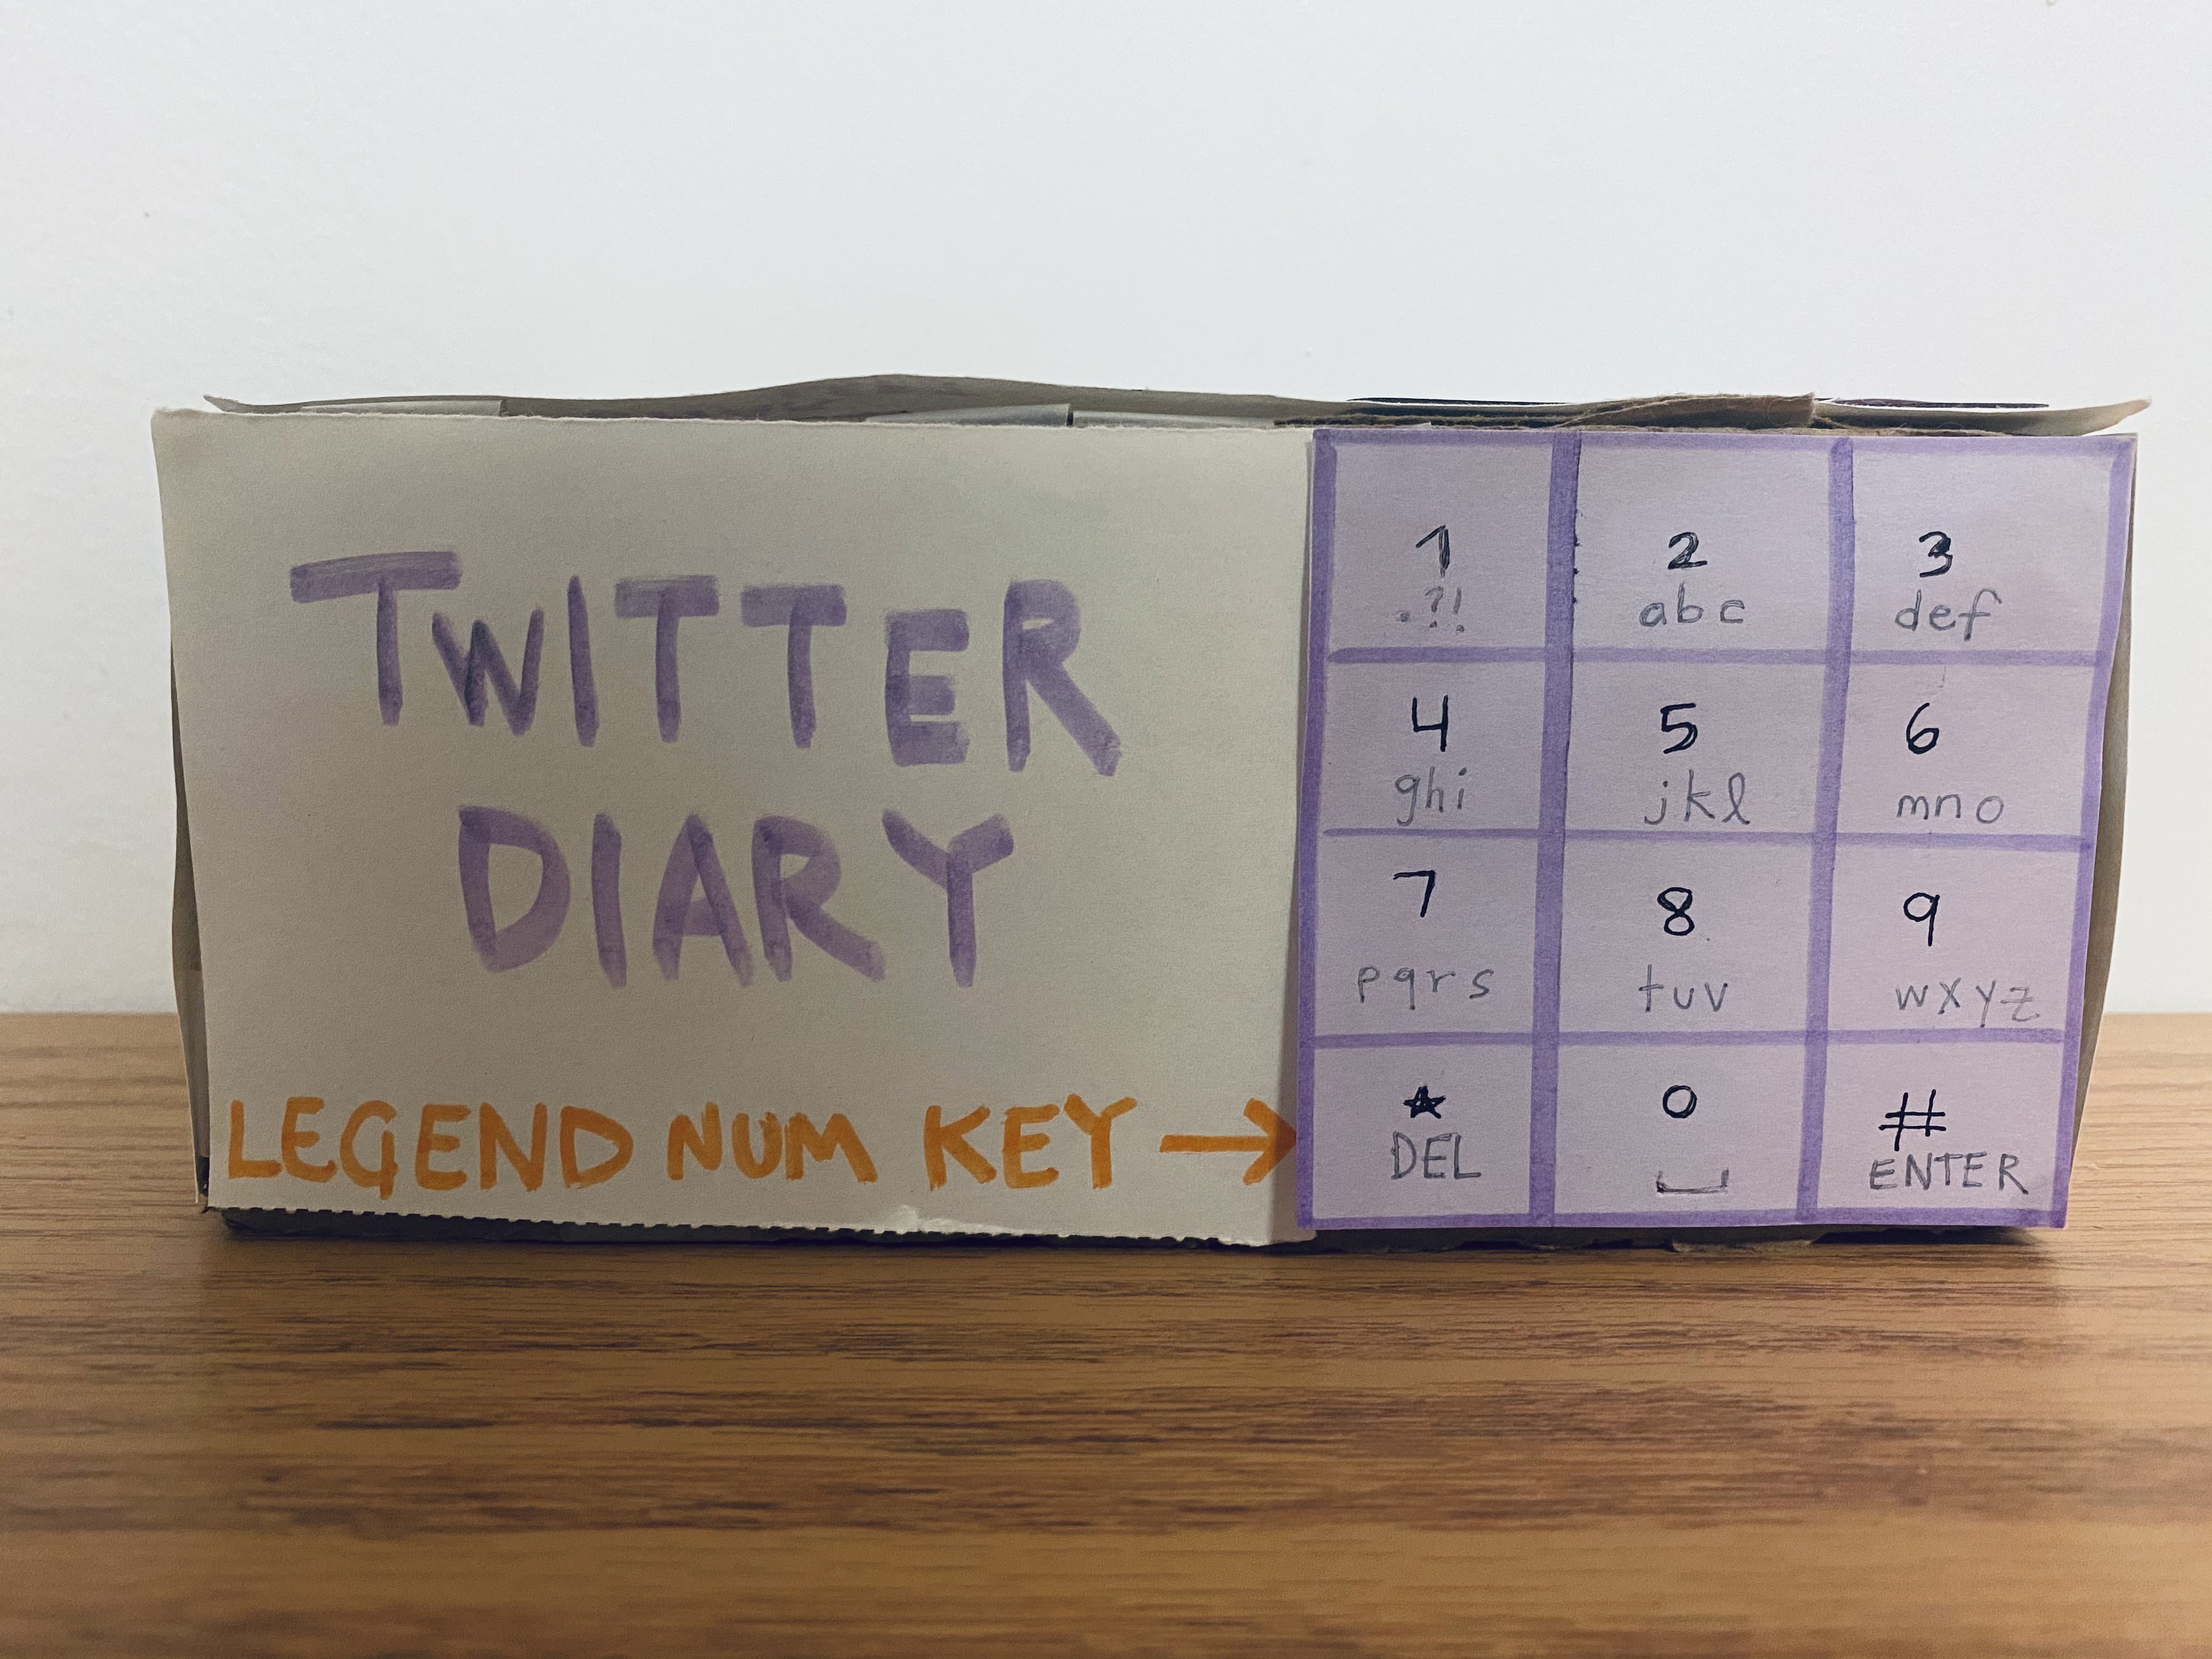 TWITTER
DIARY
LEGEND NUM KEY →
1 2 3
.?! abc def
4 5 6
ghi jkl mno
7 8 9
pqrs tuv wxyz
★ 0 #
DEL ⎵ ENTER